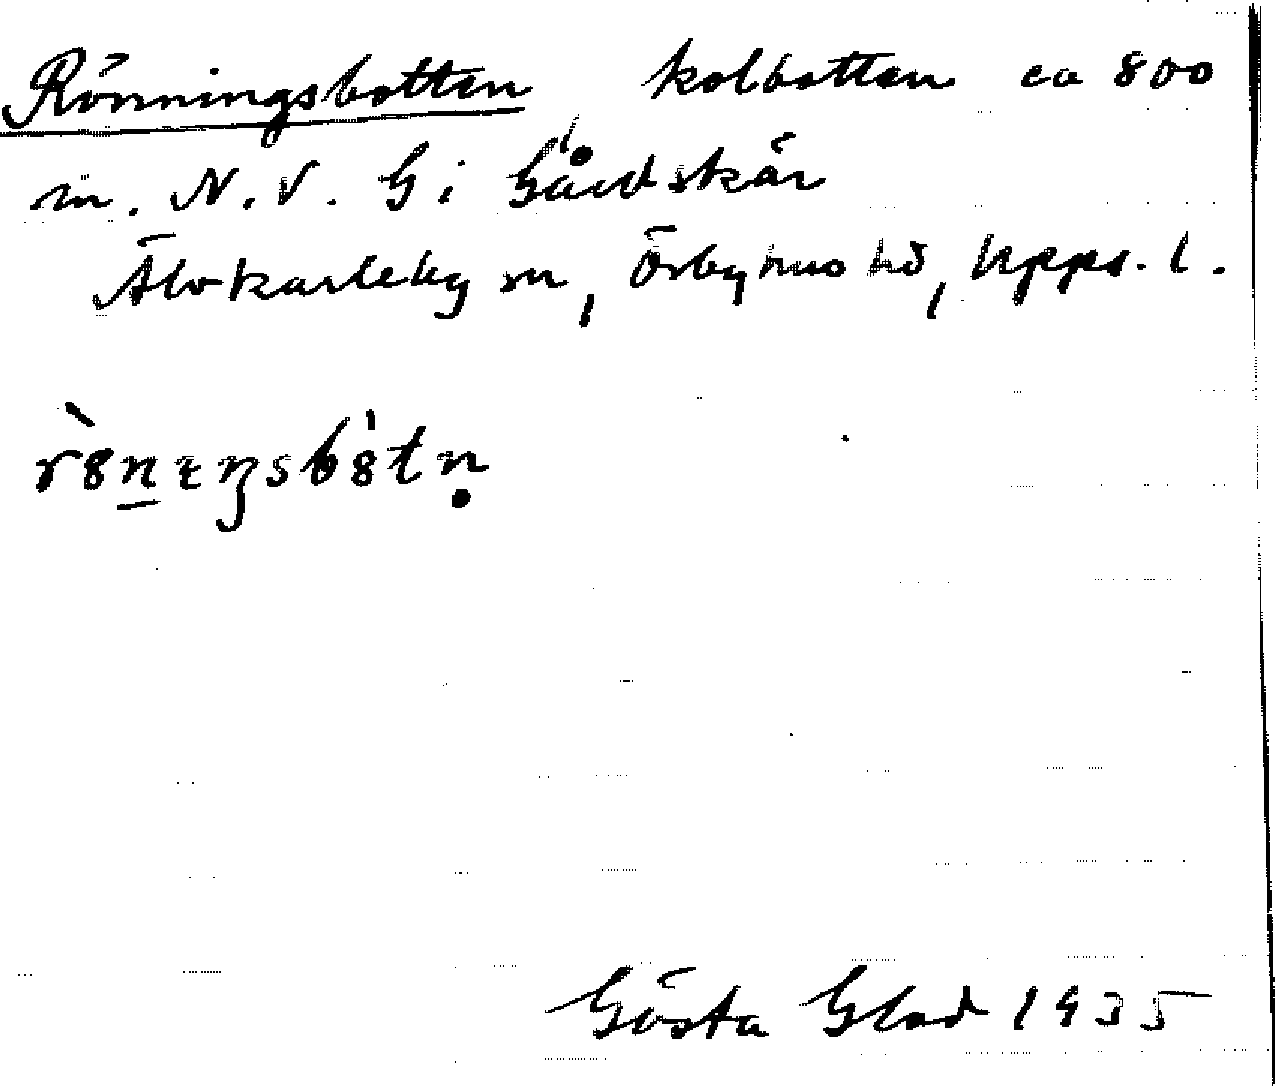 Rönningsbotten, kolbotten ca 800
m. N.V. G i Gårdskär
Älvkarleby sn, Örbyhus hd, Upps. l.
Gösta Glad 1935